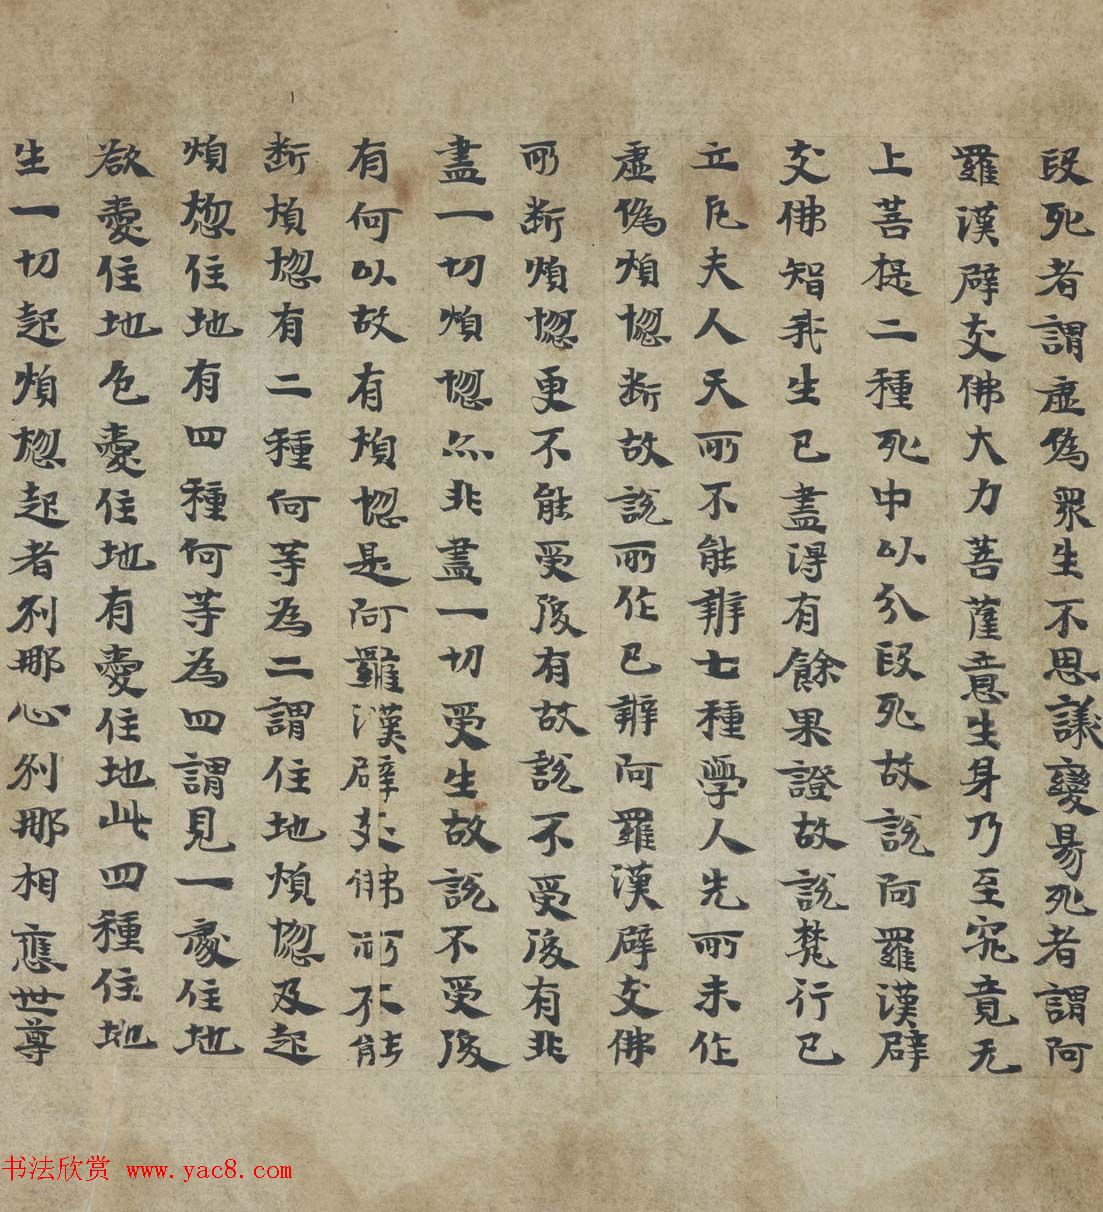 段死者謂虛偽眾生不思議變易死者謂阿
羅漢辟支佛大力菩薩意生身乃至究竟无
上菩提二種死中以分段死故說阿羅漢辟
支佛智我生已盡淂有餘果證故說梵行已
立凡夫人天所不能辦七種學人先所未作
虛偽煩惚断故說所作已辦阿羅漢辟支佛
所断煩惚更不能受後有故說不受後有非
盡一切煩惚亦非盡一切受生故說不受後
有何以故有煩惚是阿羅漢辟支佛所不能
断煩惚有二種何等為二謂住地煩惚及起
煩惚住地有四種何等為四謂見一處住地
欲愛住地色愛住地有愛住地此四種住地
生一切起煩惚起者刹那心刹那相應世尊
书法欣赏 www.yac8.com